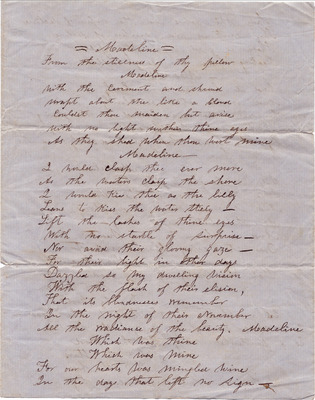 = Madeline =
From the stillness of thy pillow
Madeline
With the cerement and shroud
Wrapt about thee like a cloud
Couldst thou maiden but arise
With no light within thine eyes
As they shed when thou wert mine
Madeline —
I would clasp thee ever more
As the waters clasp the shore
I would kiss thee as the lilly
Leans to kiss the water
Lift the lashes of thine eyes
With no startle of surprise —
Nor avoid their glowing gaze —
For their light in other days
Dazzled so my dwelling vision
With the flash of their elision,
That its blindnesses remember
In the night of their November
All the radiance of the beauty, Madeline
Which was thine
Which was mine
For our hearts was mingled wine
In the days that left no sign —